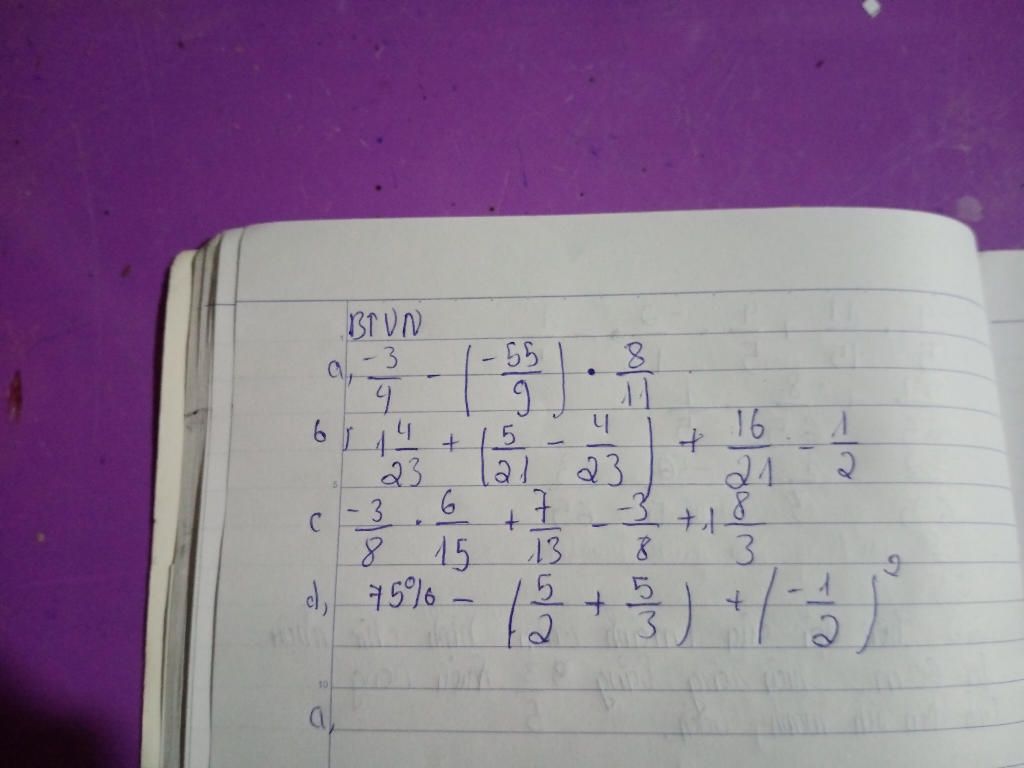 BTVN
a, -3/4 - (-55/9) · 8/11
b, 1 4/23 + (5/21 - 4/23) + 16/21 - 1/2
c -3/8 · 6/15 + 7/13 - -3/8 + 1 8/3
d, 75% - (5/2 + 5/3) + (-1/2)²
a,